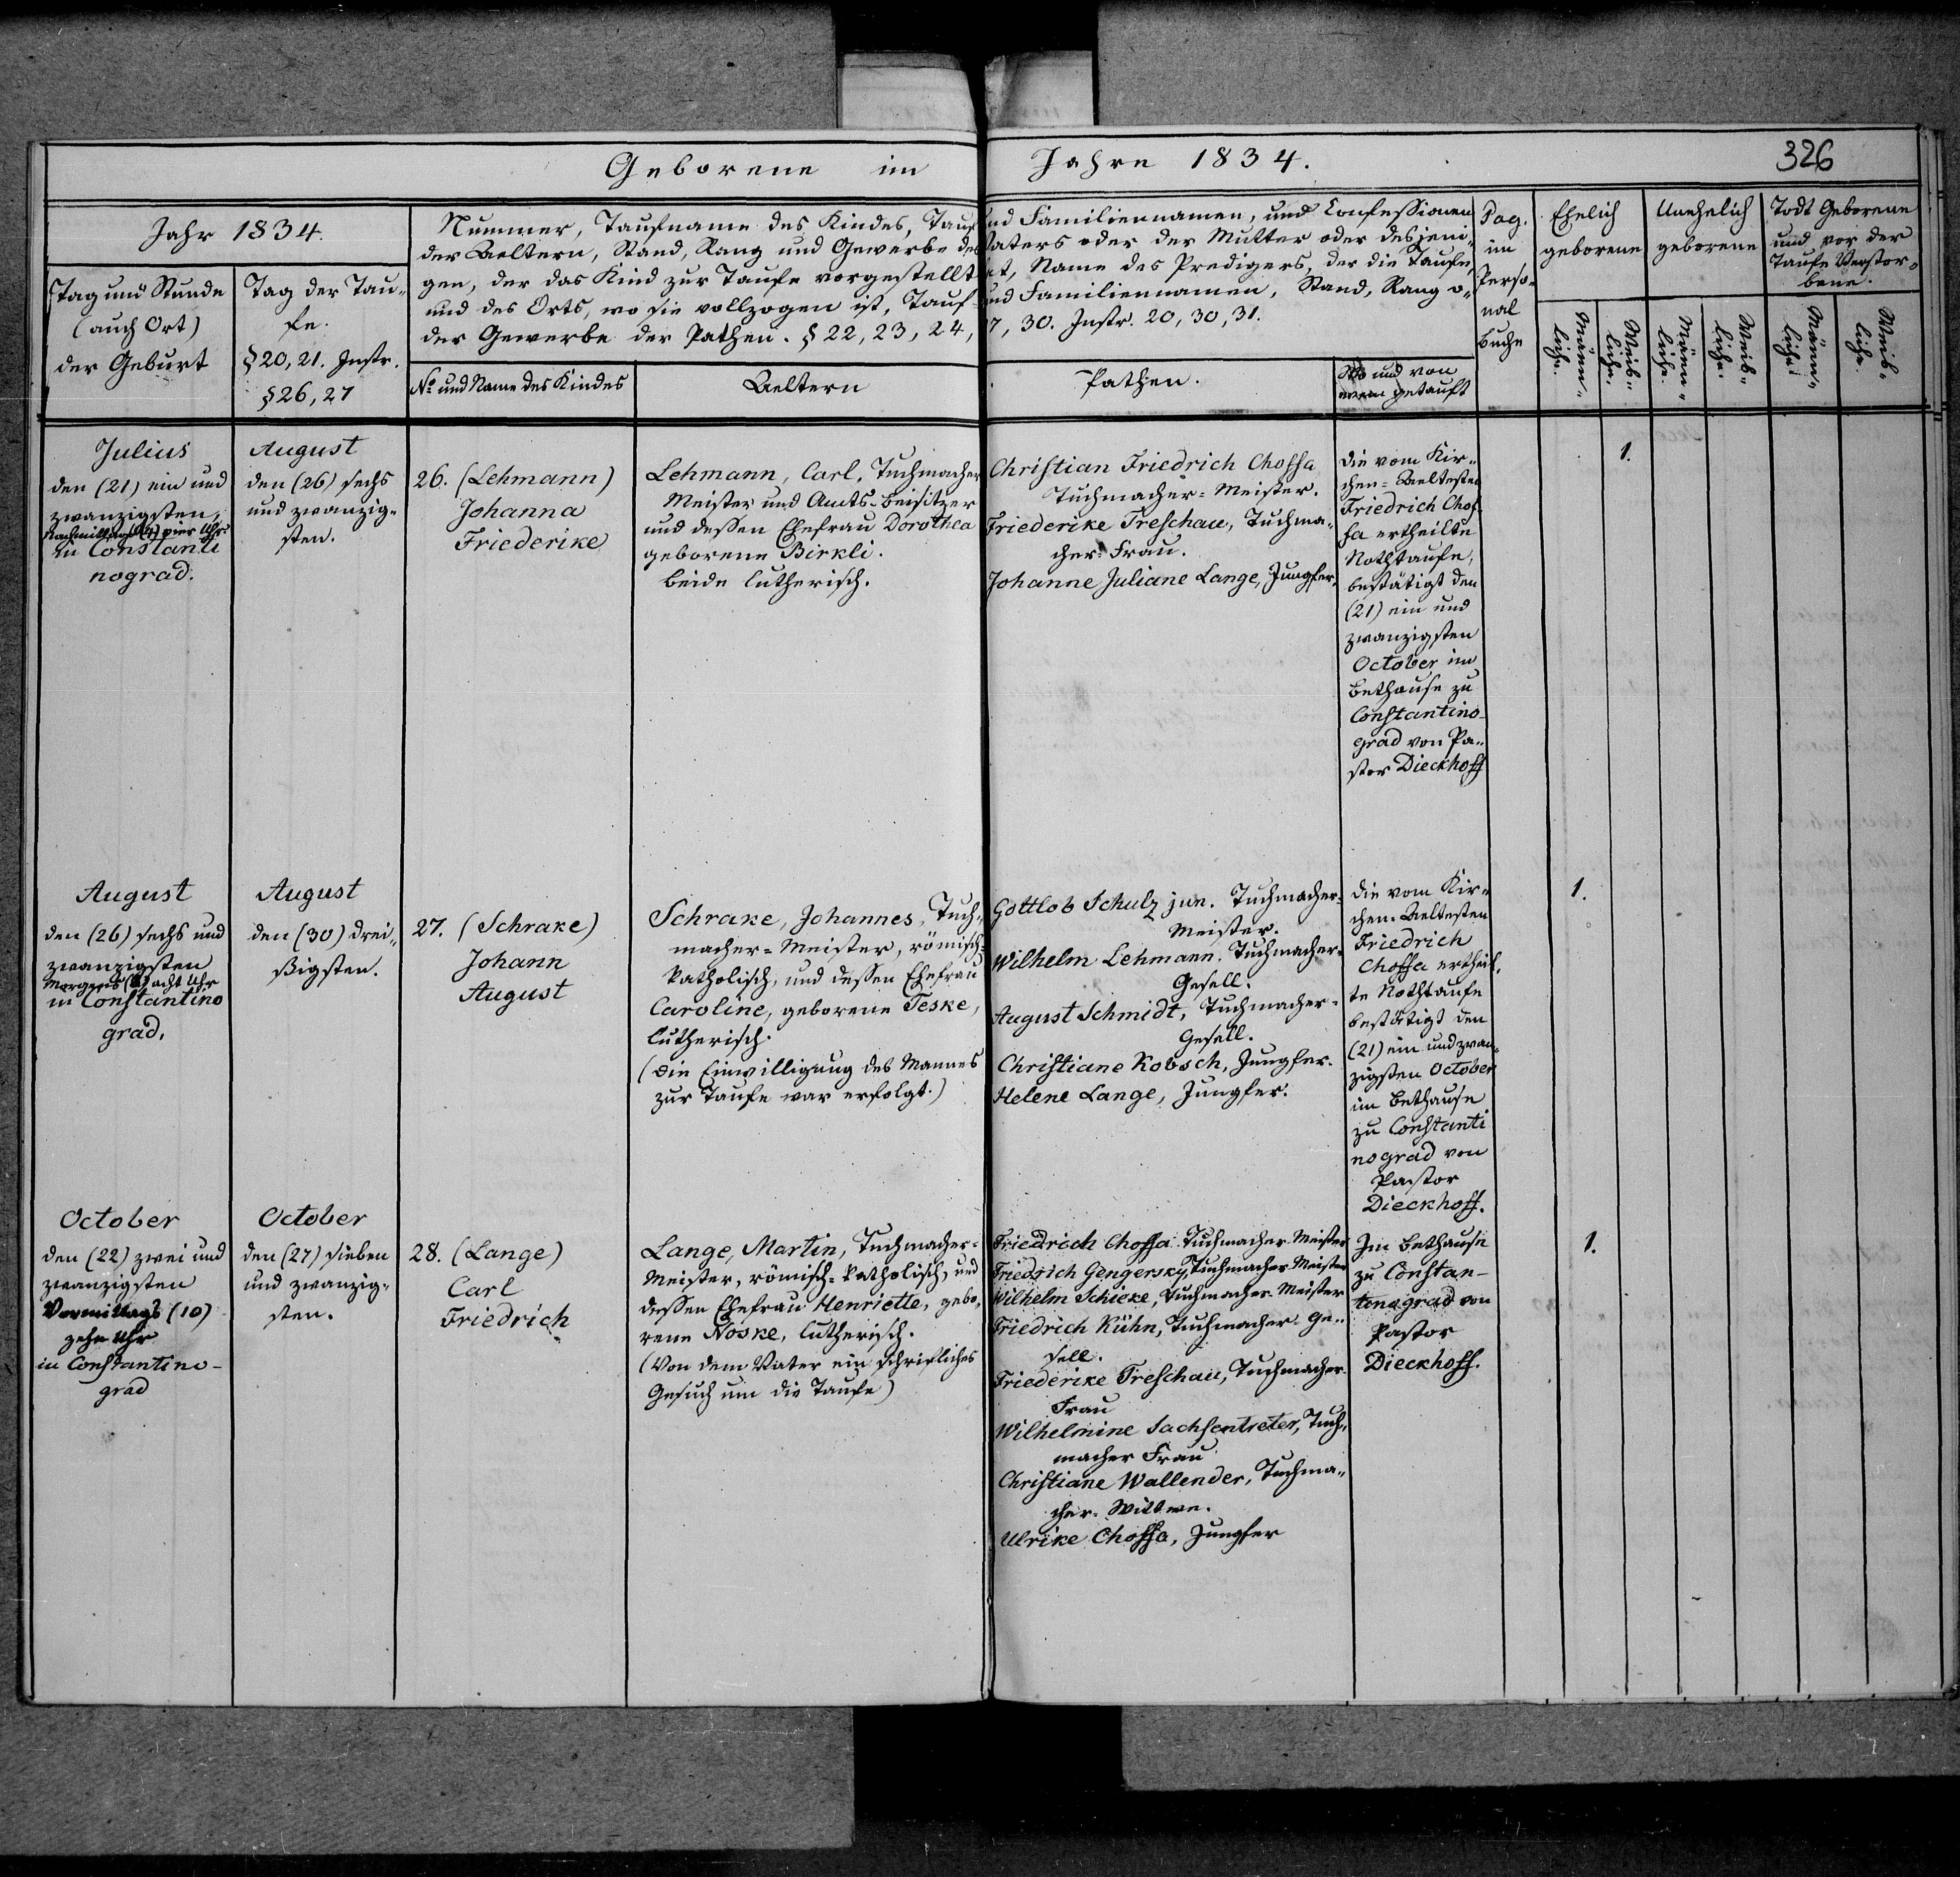 Geborene im Jahre 1834.
326
Jahr 1834.
Tag und Stunde
(auch Ort)
der Geburt
Tag der Tau-
fe.
§20, 21. Instr.
§26, 27
Nummer, Taufname des Kindes, Tauf und Familiennamen, und Confessionen
der Aeltern, Stand, Rang und Gewerbe des Vaters oder der Mutter oder desjeni-
gen, der das Kind zur Taufe vorgestellt hat, Name des Predigers, der die Taufe
und des Orts, wo sie vollzogen ist, Tauf- und Familiennamen, Stand, Rang o-
der Gewerbe der Pathen. § 22, 23, 24, 27, 30. Instr. 20, 30, 31.
No und Name des Kindes
Aeltern
Pathen.
Wo und von
wem getauft
Pag.
im
Perso-
nal
buche
Ehelich
geborene
Unehelich
geborene
Todt Geborene
und vor der
Taufe Verstor-
bene.
Männ-
liche.
Weib-
liche.
Männ-
liche.
Weib-
liche.
Männ-
liche.
Weib-
liche.
Julius
den (21) ein und
zwanzigsten,
Nachmittags (4) vier Uhr
in Constanti
nograd.
August
den (26) sechs
und zwanzig-
sten.
26. (Lehmann)
Johanna
Friederike
Lehmann, Carl, Tuchmacher
Meister und Amts-Beisitzer
und dessen Ehefrau Dorothea
geborene Birkli.
beide lutherisch.
Christian Friedrich Choffa
Tuchmacher-Meister.
Friederike Treschau, Tuchma-
cher-Frau.
Johanne Juliane Lange, Jungfer.
Die vom Kir-
chen-Aeltesten
Friedrich Chof-
fa ertheilte
Nothtaufe,
bestätigt den
(21) ein und
zwanzigsten
October im
Bethause zu
Constantino-
grad von Pa-
stor Dieckhoff
1.
August
den (26) sechs und
zwanzigsten
Morgens (8) acht Uhr
in Constantino
grad.
August
den (30) drei-
ßigsten.
27. (Schrake)
Johann
August
Schrake, Johannes, Tuch-
macher-Meister, römisch-
katholisch, und dessen Ehefrau
Caroline, geborene Teske,
lutherisch.
(Die Einwilligung des Mannes
zur Taufe war erfolgt.)
Gottlob Schulz jun. Tuchmacher-
Meister.
Wilhelm Lehmann. Tuchmacher-
Gesell.
August Schmidt, Tuchmacher-
Gesell.
Christiane Kobsch, Jungfer.
Helene Lange, Jungfer.
Die vom Kir-
chen-Aeltesten
Friedrich
Choffa ertheil-
te Nothtaufe
bestätigt den
(21) ein und zwan-
zigsten October
im Bethause
zu Constanti
nograd von
Pastor
Dieckhoff.
1.
October
den (22) zwei und
zwanzigsten
Vormittags (10)
zehn Uhr
in Constantino-
grad
October
den (27) sieben
und zwanzig-
sten.
28. (Lange)
Carl
Friedrich
Lange, Martin, Tuchmacher-
Meister, römisch-katholisch, und
dessen Ehefrau Henriette, gebo-
rene Noske, lutherisch.
(Von dem Vater ein schriftliches
Gesuch um die Taufe)
Friedrich Choffa Tuchmacher Meister
Friedrich Gengersky, Tuchmacher Meister
Wilhelm Schieke, Tuchmacher Meister
Friedrich Kühn, Tuchmacher Ge-
sell.
Friederike Treschau, Tuchmacher-
Frau
Wilhelmine Sachsentreter, Tuch-
macher Frau
Christiane Wallender, Tuchma-
cher-Wittwe.
Ulrike Choffa, Jungfer
Im Bethause
zu Constan-
tinograd von
Pastor
Dieckhoff.
1.